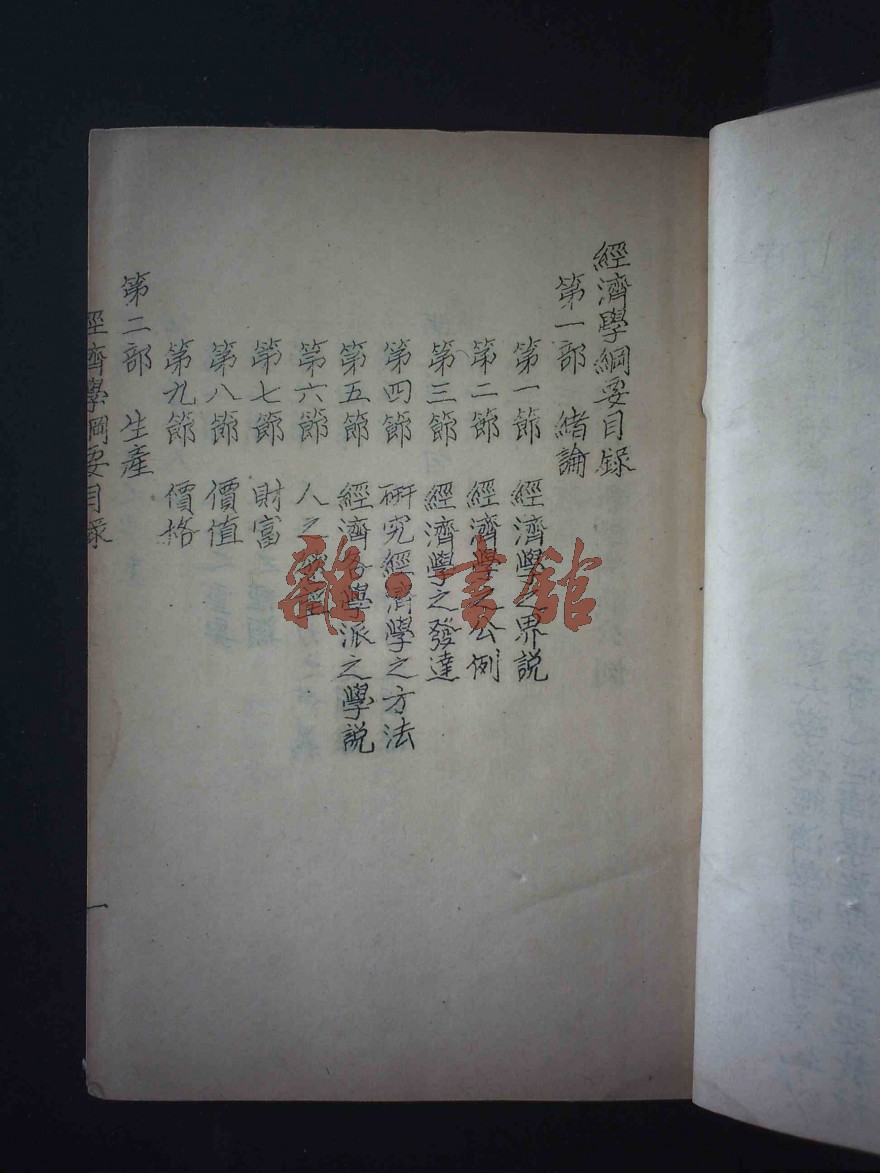 經濟學綱要目錄
第一部 緒論
第一節 經濟學之界説
第二節 經濟學之公例
第三節 經濟學之發達
第四節 研究經濟學之方法
第五節 經濟各學派之學説
第六節 人之
第七節 財富
第八節 價值
第九節 價格
第二部 生產
經濟學綱要目錄 一
雜·書館